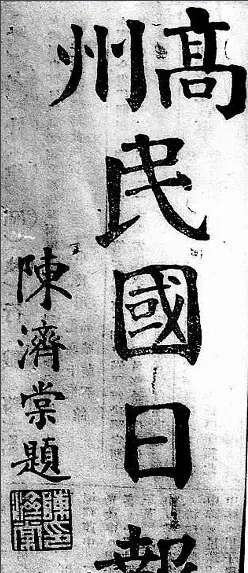 高州
民國日報
陳濟棠題